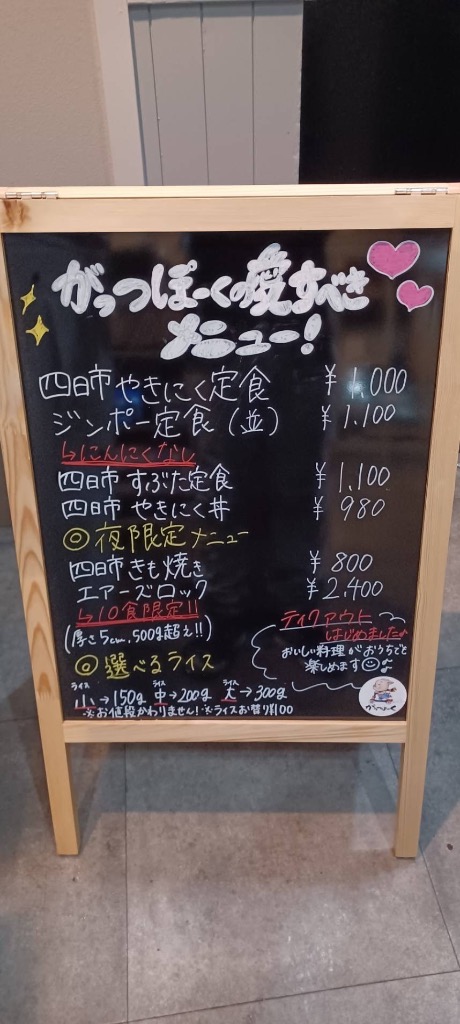 がっつぽーくの愛すべき
メニュー!
四日市 やきにく定食 ¥1,000
ジンポー定食(並) ¥1.100
↳にんにくなし
四日市 すぶた定食 ¥1,100
四日市 やきにく丼 ¥980
◎夜限定メニュー
四日市きも焼き ¥800
エアーズロック ¥2,400
↳10食限定!!
(厚さ5cm,500g超え!!)
テイクアウト
はじめました♪
おいしい料理がおうちでも
楽しめます☺♫
◎選べるライス
ライス小→150g ライス中→200g ライス大→300g
※お値段かわりません!※ライスお替り¥100